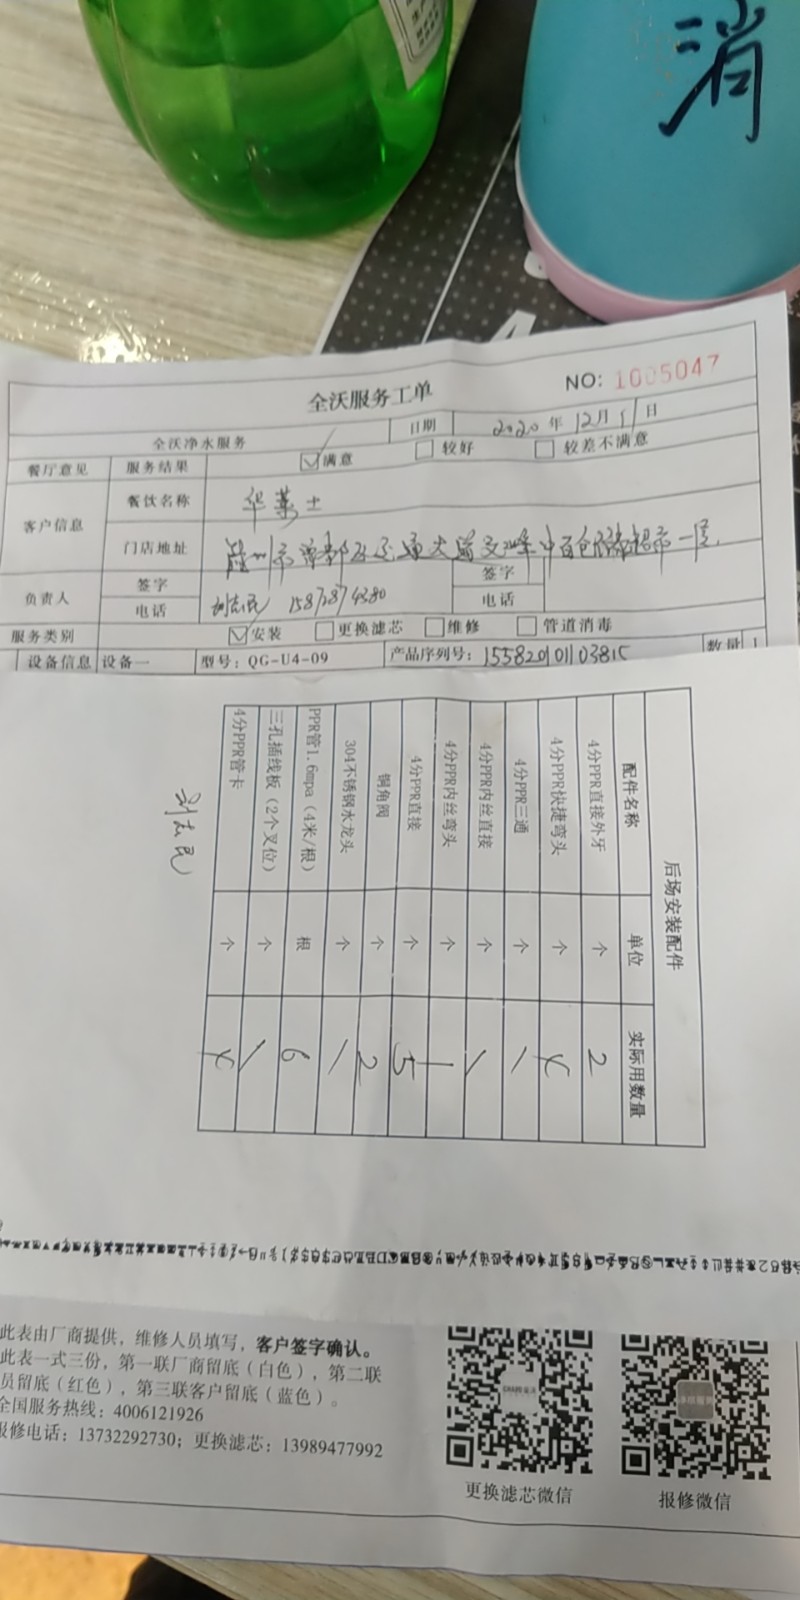 消
全沃服务工单
NO: 1005047
全沃净水服务 日期 2020年12月11日
餐厅意见 服务结果 满意 较好 较差不满意
客户信息 餐饮名称 华莱士
门店地址 一层
负责人 签字 刘志民 签字
电话 电话
服务类别 安装 更换滤芯 维修 管道消毒
设备信息 设备一 型号: QG-U4-09 产品序列号: 数量 1
后场安装配件
配件名称 单位 实际用数量
4分PPR直接外牙 个 2
4分PPR快捷弯头 个 4
4分PPR三通 个 1
4分PPR内丝直接 个 1
4分PPR内丝弯头 个 1
4分PPR直接 个 5
铜角阀 个 2
304不锈钢水龙头 个 1
PPR管1.6mpa（4米/根） 根 6
三孔插线板（2个叉位） 个 1
4分PPR管卡 个 4
刘志民
此表由厂商提供，维修人员填写，客户签字确认。
此表一式三份，第一联厂商留底（白色），第二联
员留底（红色），第三联客户留底（蓝色）。
全国服务热线：4006121926
报修电话：13732292730；更换滤芯：13989477992
更换滤芯微信
报修微信